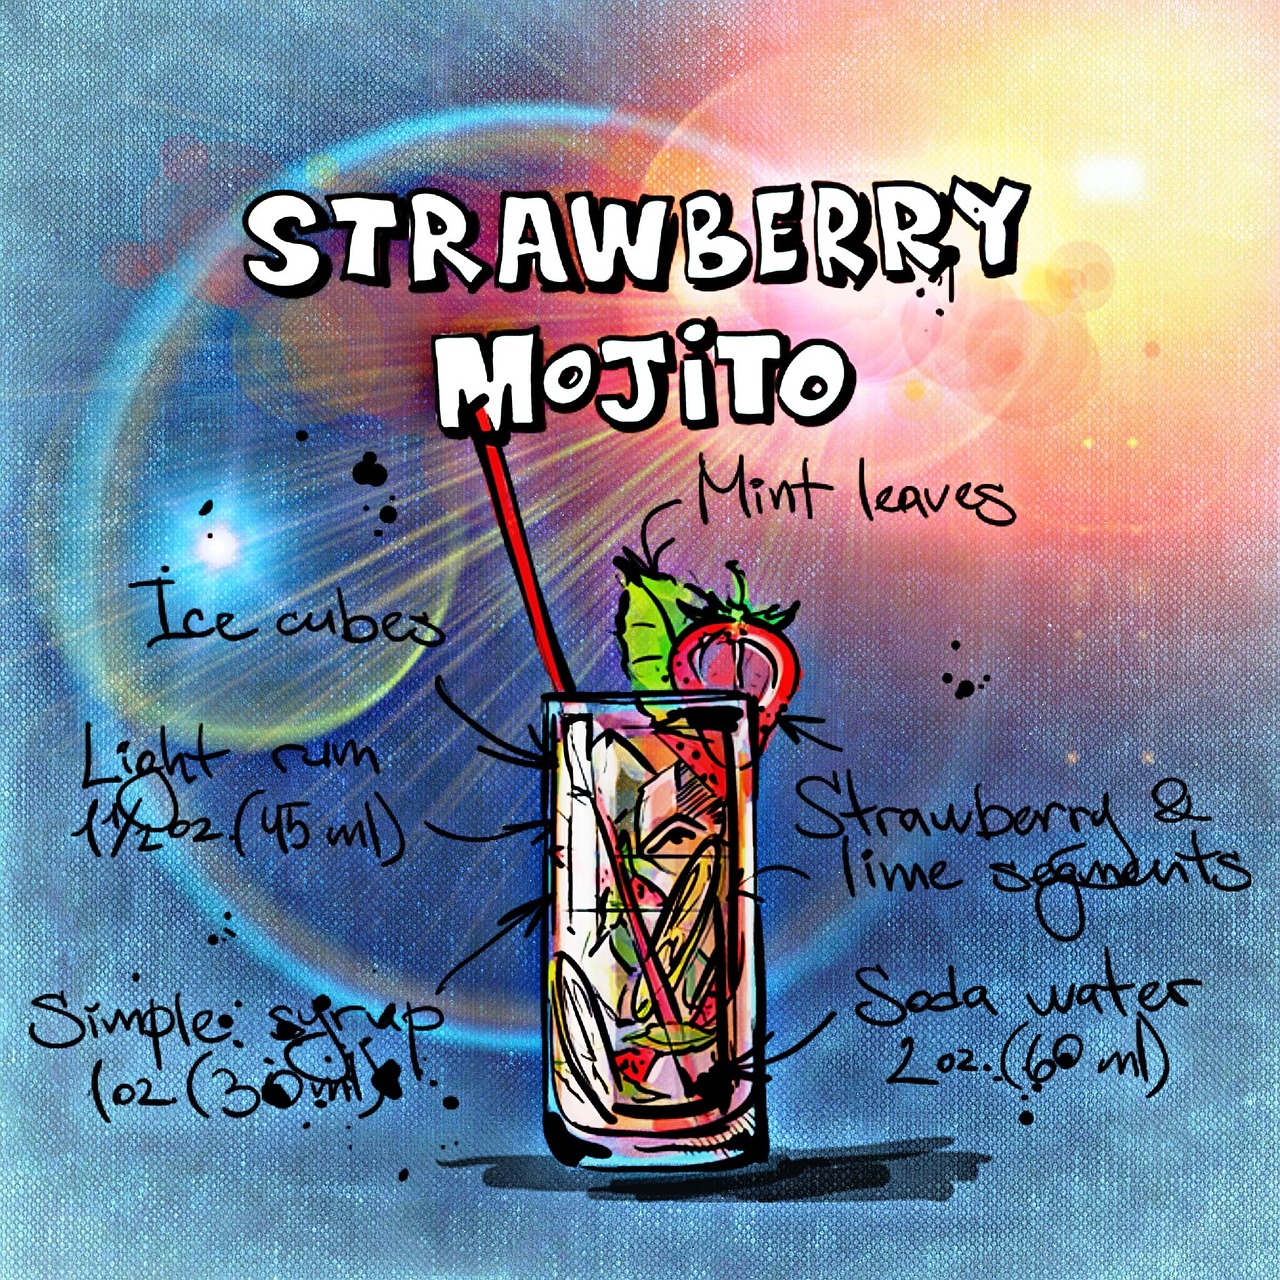 STRAWBERRY
MOJiTO
Mint leaves
Ice cubes
Light rum
1 1/2 oz. (45 ml)
Strawberry &
lime segments
Simple syrup
1 oz (30 ml)
Soda water
2 oz. (60 ml)